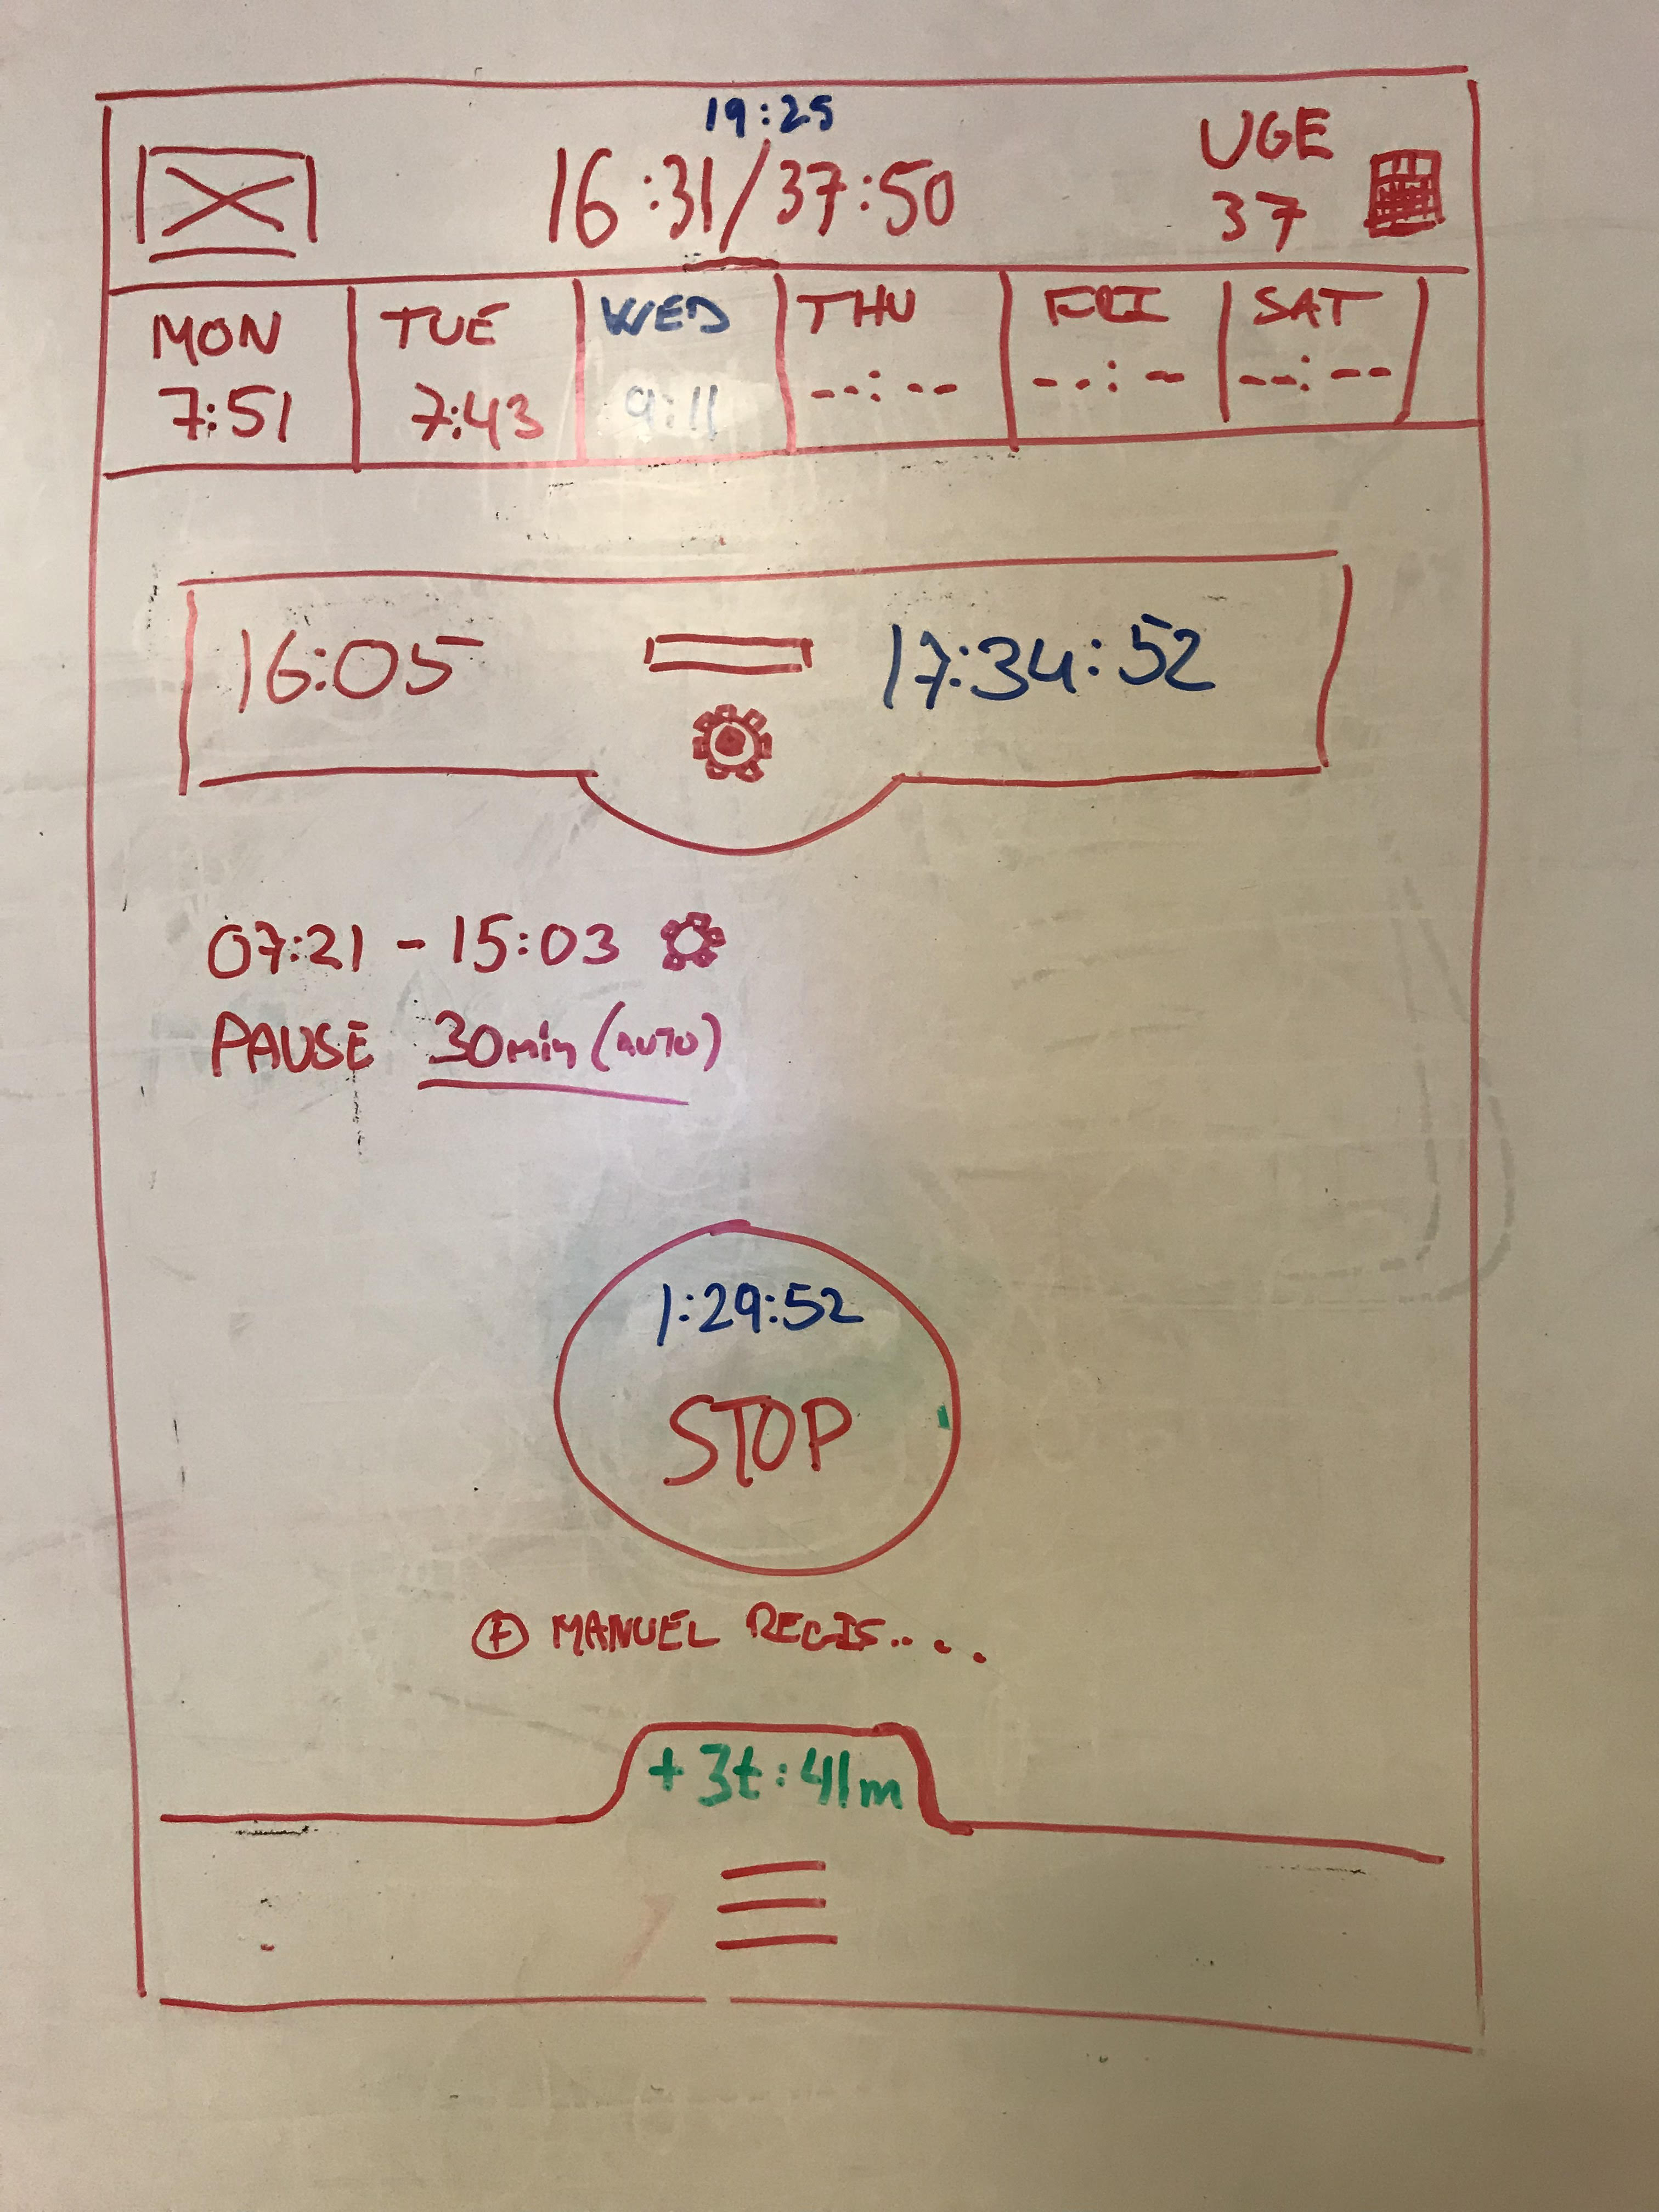 19:25
16:31/37:50
UGE
37
MON TUE WED THU FRI SAT
7:51 7:43 9:11 --:-- --:-- --:--
16:05 17:34:52
07:21 - 15:03
PAUSE 30min (AUTO)
1:29:52
STOP
+ MANUEL REGIS....
+3t:41m